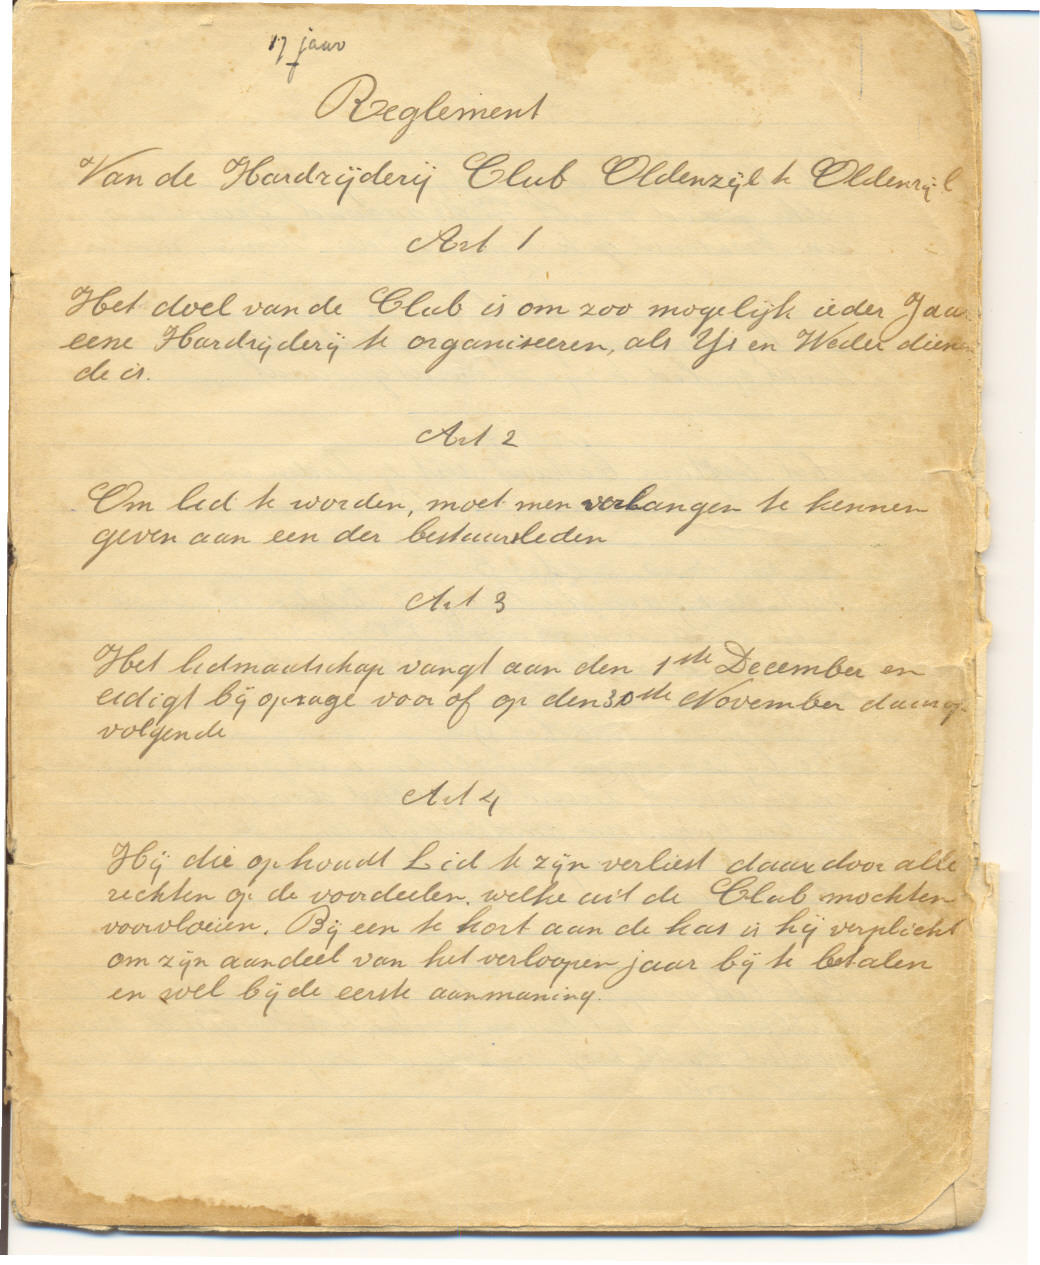 17 jaar
Reglement
Van de Hardrijderij Club Oldenzijl te Oldenzijl
Art 1
Het doel van de Club is om zoo mogelijk ieder Jaar
eene Hardrijderij te organiseeren, als Ys en Weder dienen
de is.
Art 2
Om lid te worden, moet men verlangen te kennen
geven aan een der bestuursleden
Art 3
Het lidmaatschap vangt aan den 1ste December en
eidigt bij opzage voor of op den 30ste November daarop
volgende
Art 4
Hij die ophoudt Lid te zijn verliest daardoor alle
rechten op de voordeelen. welke uit de Club mochten
voorvloeien. Bij een te kort aan de kas is hij verplicht
om zijn aandeel van het verloopen jaar bij te betalen
en wel bij de eerste aanmaning.